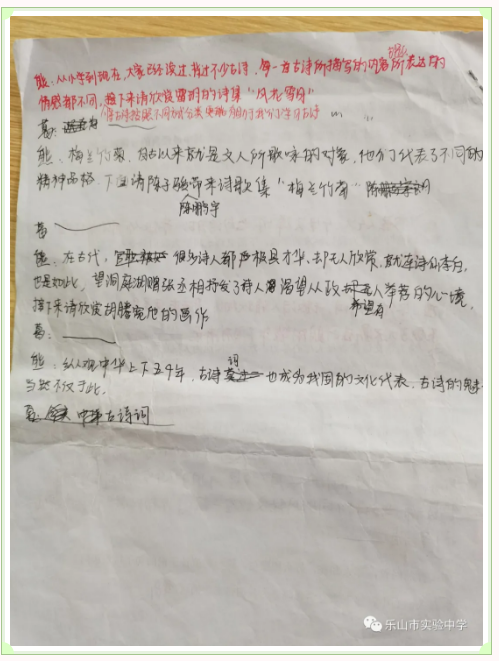 熊：从小学到现在，大家已经读过、背过不少古诗，每一首古诗所描写的内容所表达的
情感都不同，接下来请欣赏胡的诗集“风花雪月”
将古诗按照不同分类 有助于我们学习古诗
葛：
熊：梅兰竹菊，自古以来就是文人所歌咏的对象，他们代表了不同的
精神品格，下面请陈子 带来诗歌集“梅兰竹菊”
葛
熊：在古代，很多诗人都极具才华，却无人欣赏，就连诗仙李白，
也是如此，望洞庭湖赠张丞相抒发了诗人渴望从政希望有人举荐的心境，
接下来请欣赏胡 的画作
葛：
熊：纵观中华上下五千年，古诗词也成为我国的文化代表，古诗的魅
当然不仅于此，
葛： 中来古诗词
乐山市实验中学